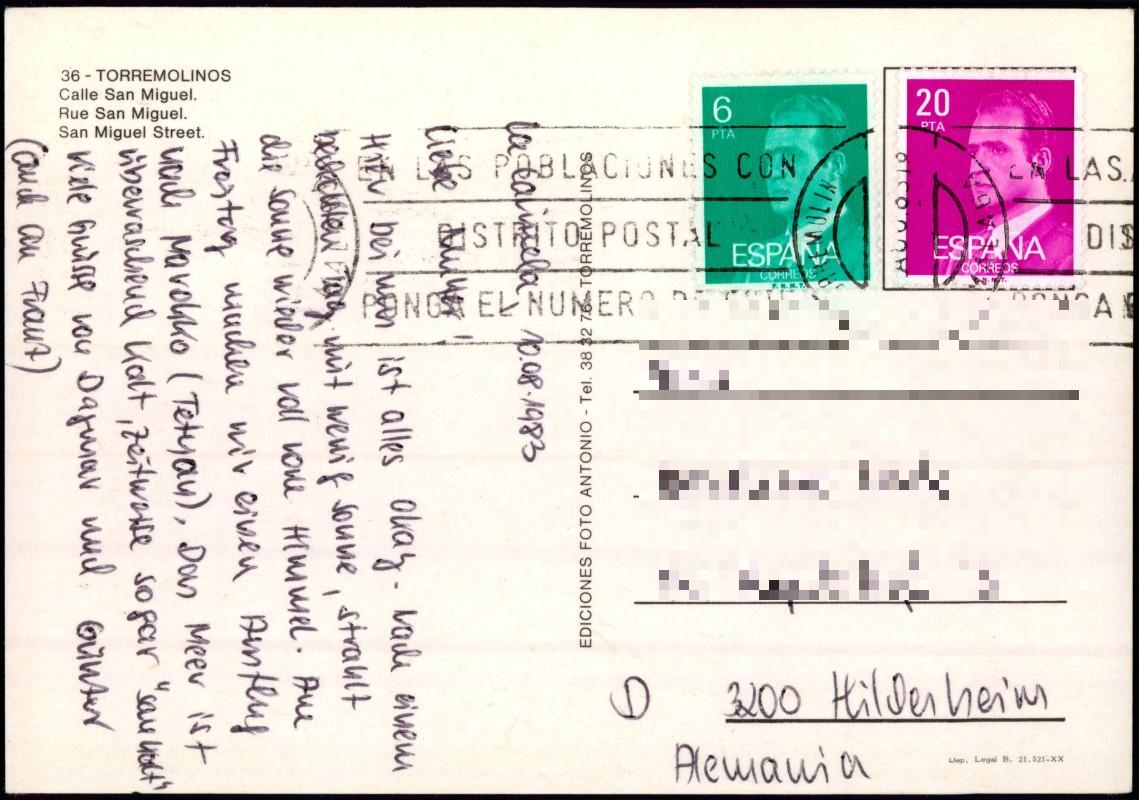 36 - TORREMOLINOS
Calle San Miguel.
Rue San Miguel.
San Miguel Street.
La Carihuela, 10.08.1983
Liebe
Hier bei uns ist alles okay. Nach einem
Tag mit wenig Sonne, strahlt
die Sonne wieder voll vom Himmel. Am
Freitag machen wir einen Ausflug
nach Marokko (Tetuan). Das Meer ist
überraschend kalt, zeitweise sogar "saukalt"
Viele Grüße von Dagmar und Günter
(auch an Franz)
EDICIONES FOTO ANTONIO - Tel. 38 32 76 - TORREMOLINOS
6
PTA
ESPAÑA
CORREOS
F.N.M.T.
20
PTA
ESPAÑA
CORREOS
F.N.M.T.
EN LAS POBLACIONES CON
DISTRITO POSTAL
PONGA EL NUMERO DE
EN LAS
DIS
PONGA E
D 3200 Hildesheim
Alemania
Dep. Legal B. 21.521-XX